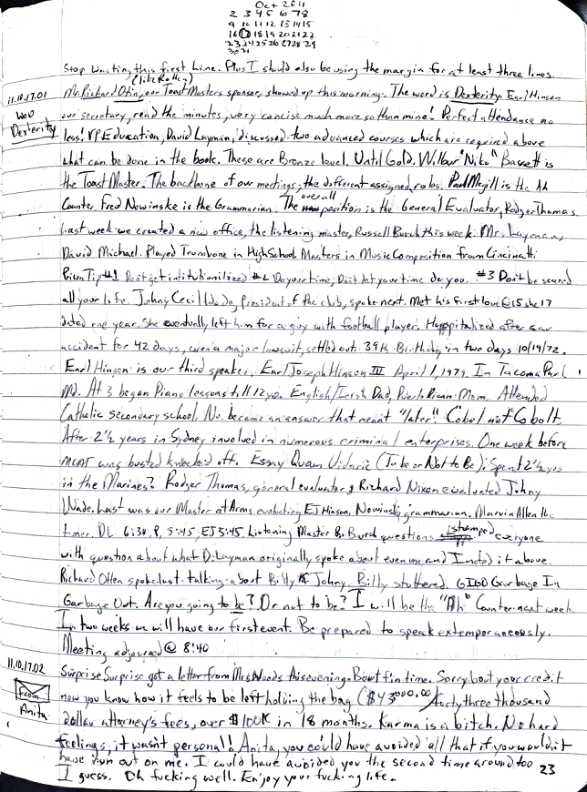 Oct 2011
2 3 4 5 6 7 8
9 10 11 12 13 14 15
16 17 18 19 20 21 22
23 24 25 26 27 28 29
30 31
Stop wasting this first line. Plus I should also be using the margin for at least three lines.
(like Rotten)
11.10.17.01
Mr. Richard Otin, our Toast Masters sponsor, showed up this morning. The word is Dexterity. Earl Hinson
Wed
Dexterity
our secretary, read the minutes, very concise much more so than mine! Perfect attendance no
less! VP Education, David Layman, discussed two advanced courses which are required above
what can be done in the book. These are Bronze level. Until Gold. Wilbur "Niko" Bassett is
the Toast Master. The backbone of our meetings, the different assigned roles. Paul Megill is the Ah
Counter. Fred Nowinske is the Grammarian. The overall position is the General Evaluator, Rodger Thomas.
Last week we created a new office, the listening master, Russell Burch this week. Mr. Layman,
David Michael. Played Trombone in High School Masters in Music Composition from Cincinatti
Prison Tip #1 Don't get institutionalized #2 Do your time, Don't let your time do you. #3 Don't be scared
all your life. Johny Cecil Wade, President of the club, spoke next. Met his first love @ 15 she 17
dated one year. She eventually left him for a guy with football player. Hospitalized after a car
accident for 42 days, won a major lawsuit, settled out. 39th Birthday in two days 10/19/72.
Earl Hinson is our third speaker. Earl Joseph Hinson III April 1, 1979. In Tacoma Park
MD. At 3 began Piano lessons till 12 yo. English/Irish Dad, Puerto Rican Mom. Attended
Catholic secondary school. No became an answer that meant "later". Cobol not Cobolt.
After 2½ years in Sydney involved in numerous criminal enterprises. One week before
MCAT was busted knocked off. Essay Quam Videric (To be or Not to Be): Spent 2½ yrs
in the Marines? Rodger Thomas, general evaluator & Richard Nixon evaluated Johny
Wade. Last was our Master at Arms evaluating EJ Hinson. Nowinski grammarian. Marvin Allen the
timer. DL 6:30, P, 5:45, EJ 5:45. Listening Master R. Burch questions stumped everyone
with question about what D. Layman originally spoke about even me and I noted it above.
Richard Otten spoke last talking about Billy & Johny. Billy stuttered. GIGO Garbage In
Garbage Out. Are you going to be? Or not to be? I will be the "Ah" Counter next week.
In two weeks we will have our first event. Be prepared to speak extemporaneously.
Meeting adjourned @ 8:40
11.10.17.02
Surprise Surprise got a letter from Ms Woods this evening. Bout fin time. Sorry bout your credit
From
Anita
now you know how it feels to be left holding the bag ($43000.00 forty three thousand
dollar attorney's fees, over $100K in 18 months. Karma is a bitch. No hard
feelings, it wasn't personal! Anita, you could have avoided all that if you wouldn't
have run out on me. I could have avoided you the second time around too
I guess. Oh fucking well. Enjoy your fucking life.
23